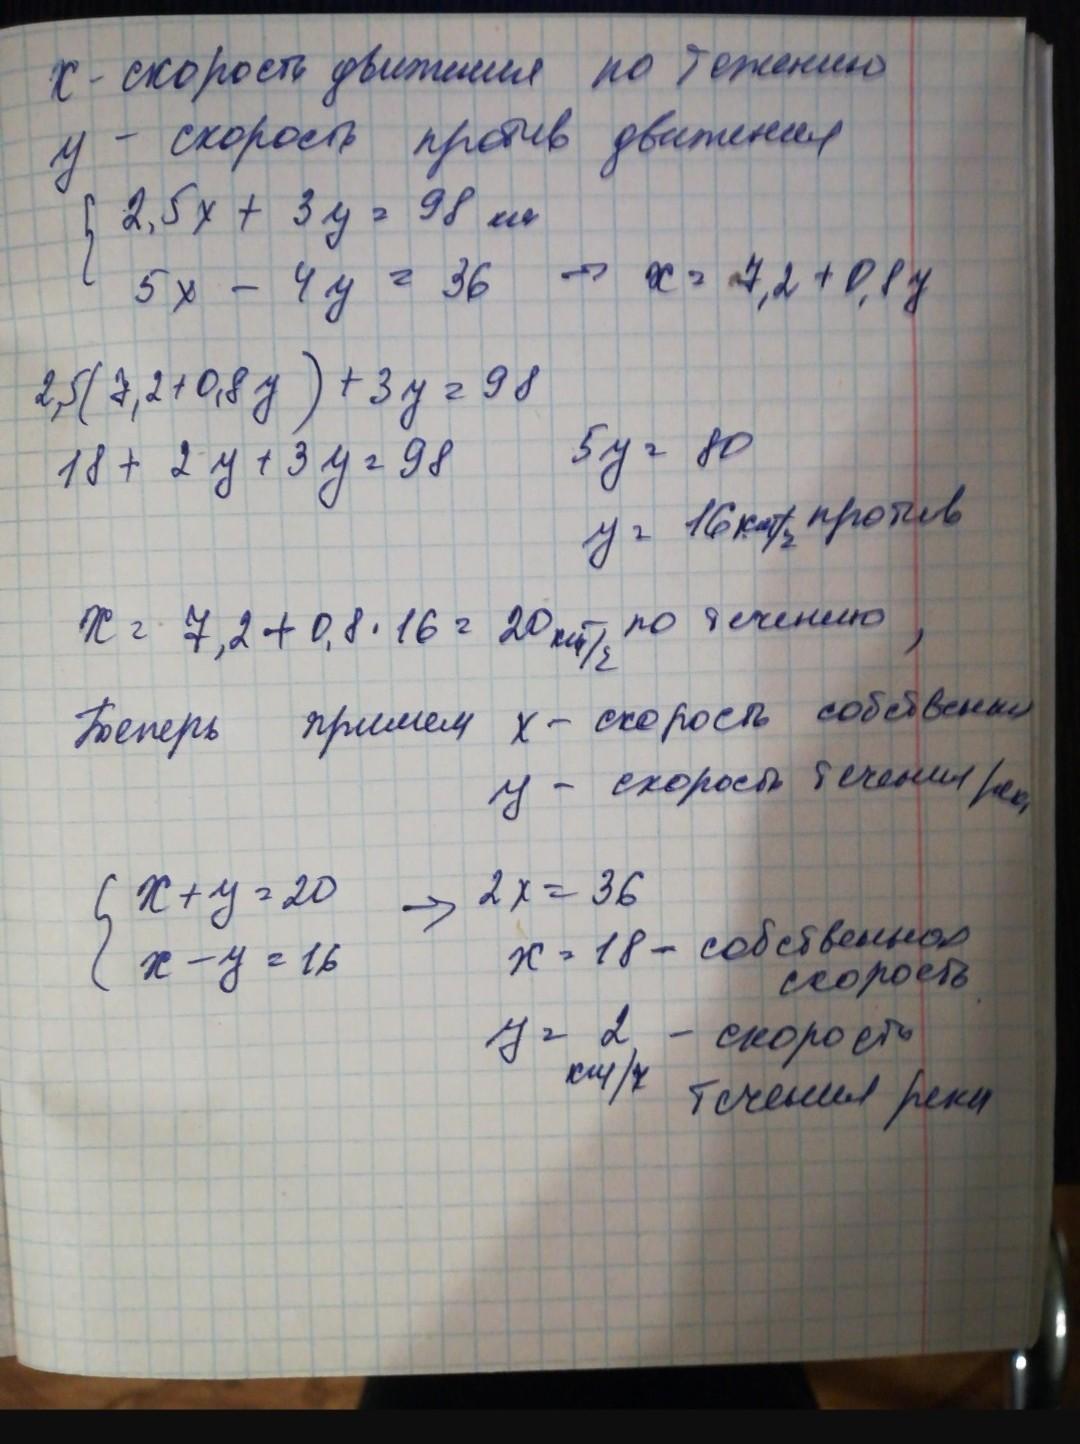 x - скорость движения по тежению
y - скорость против движения
{ 2,5x + 3y = 98 км
5x - 4y = 36 → x = 7,2 + 0,8y
2,5(7,2+0,8y) + 3y = 98
18 + 2y + 3y = 98 5y = 80
y = 16 км/ч против
x = 7,2 + 0,8 · 16 = 20 км/ч по течению,
Теперь примем x - скорость собственная
y - скорость течения реки
{ x + y = 20 → 2x = 36
x - y = 16 x = 18 - собственная
скорость
y = 2 - скорость
км/ч течения реки